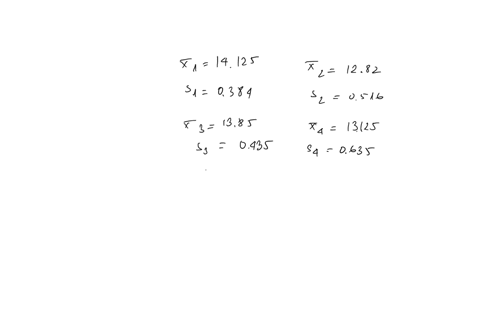 x̄1 = 14.125
s1 = 0.384
x̄2 = 12.82
s2 = 0.516
x̄3 = 13.85
s3 = 0.435
x̄4 = 13125
s4 = 0.635